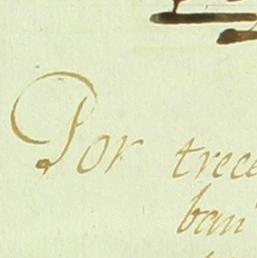 Por trece
ban